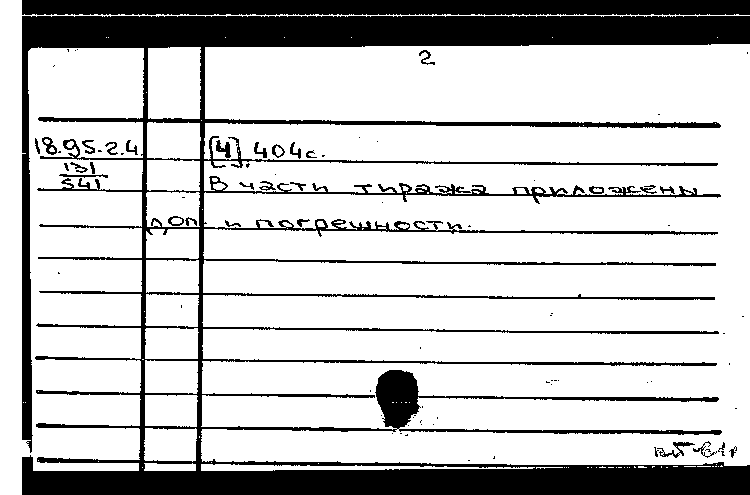 2
18.95.2.4. [4], 404с.
131
541
В части тиража приложены
доп. и погрешности.